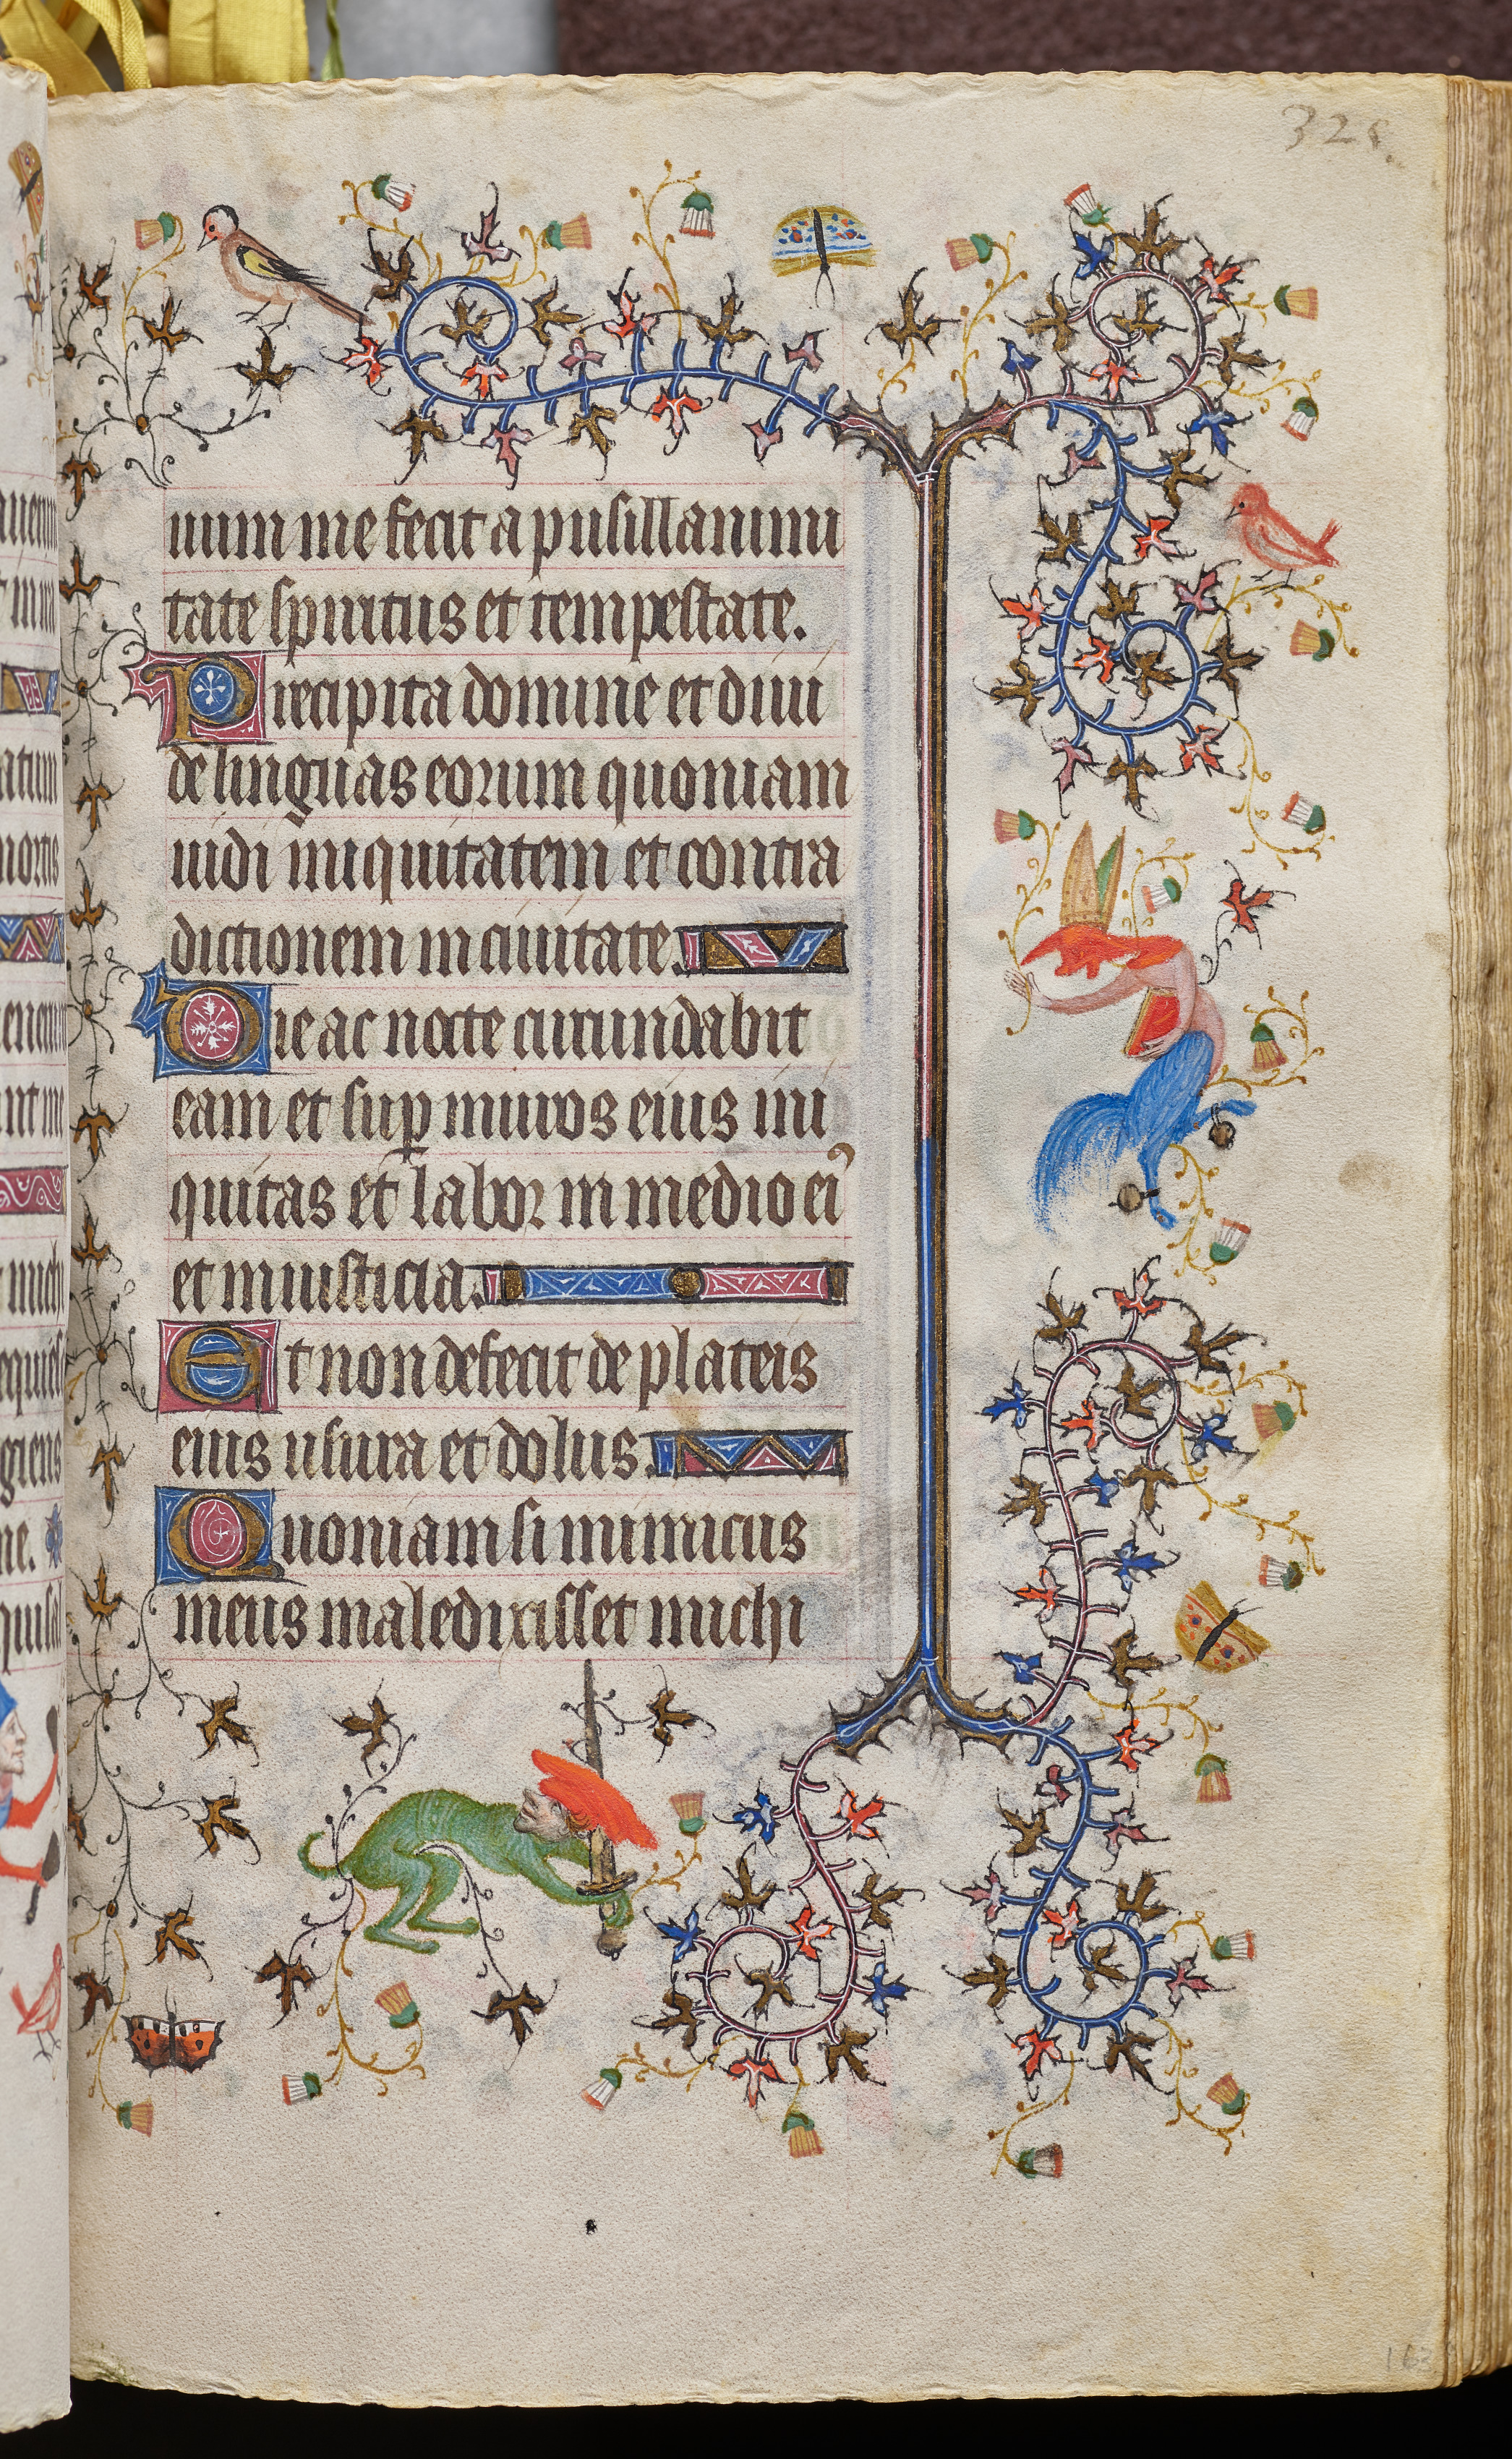 325.
uum me fecit a pusillanimi
tate spiritus et tempestate.
Precipita domine et diui
de linguas eorum quoniam
uidi iniquitatem et contra
dictionem in ciuitate.
Die ac nocte circundabit
eam et sup muros eius ini
quitas et labor in medio ei9
et iniusticia.
Et non defecit de plateis
eius usura et dolus.
Quoniam si inimicus
meus maledixisset michi
163